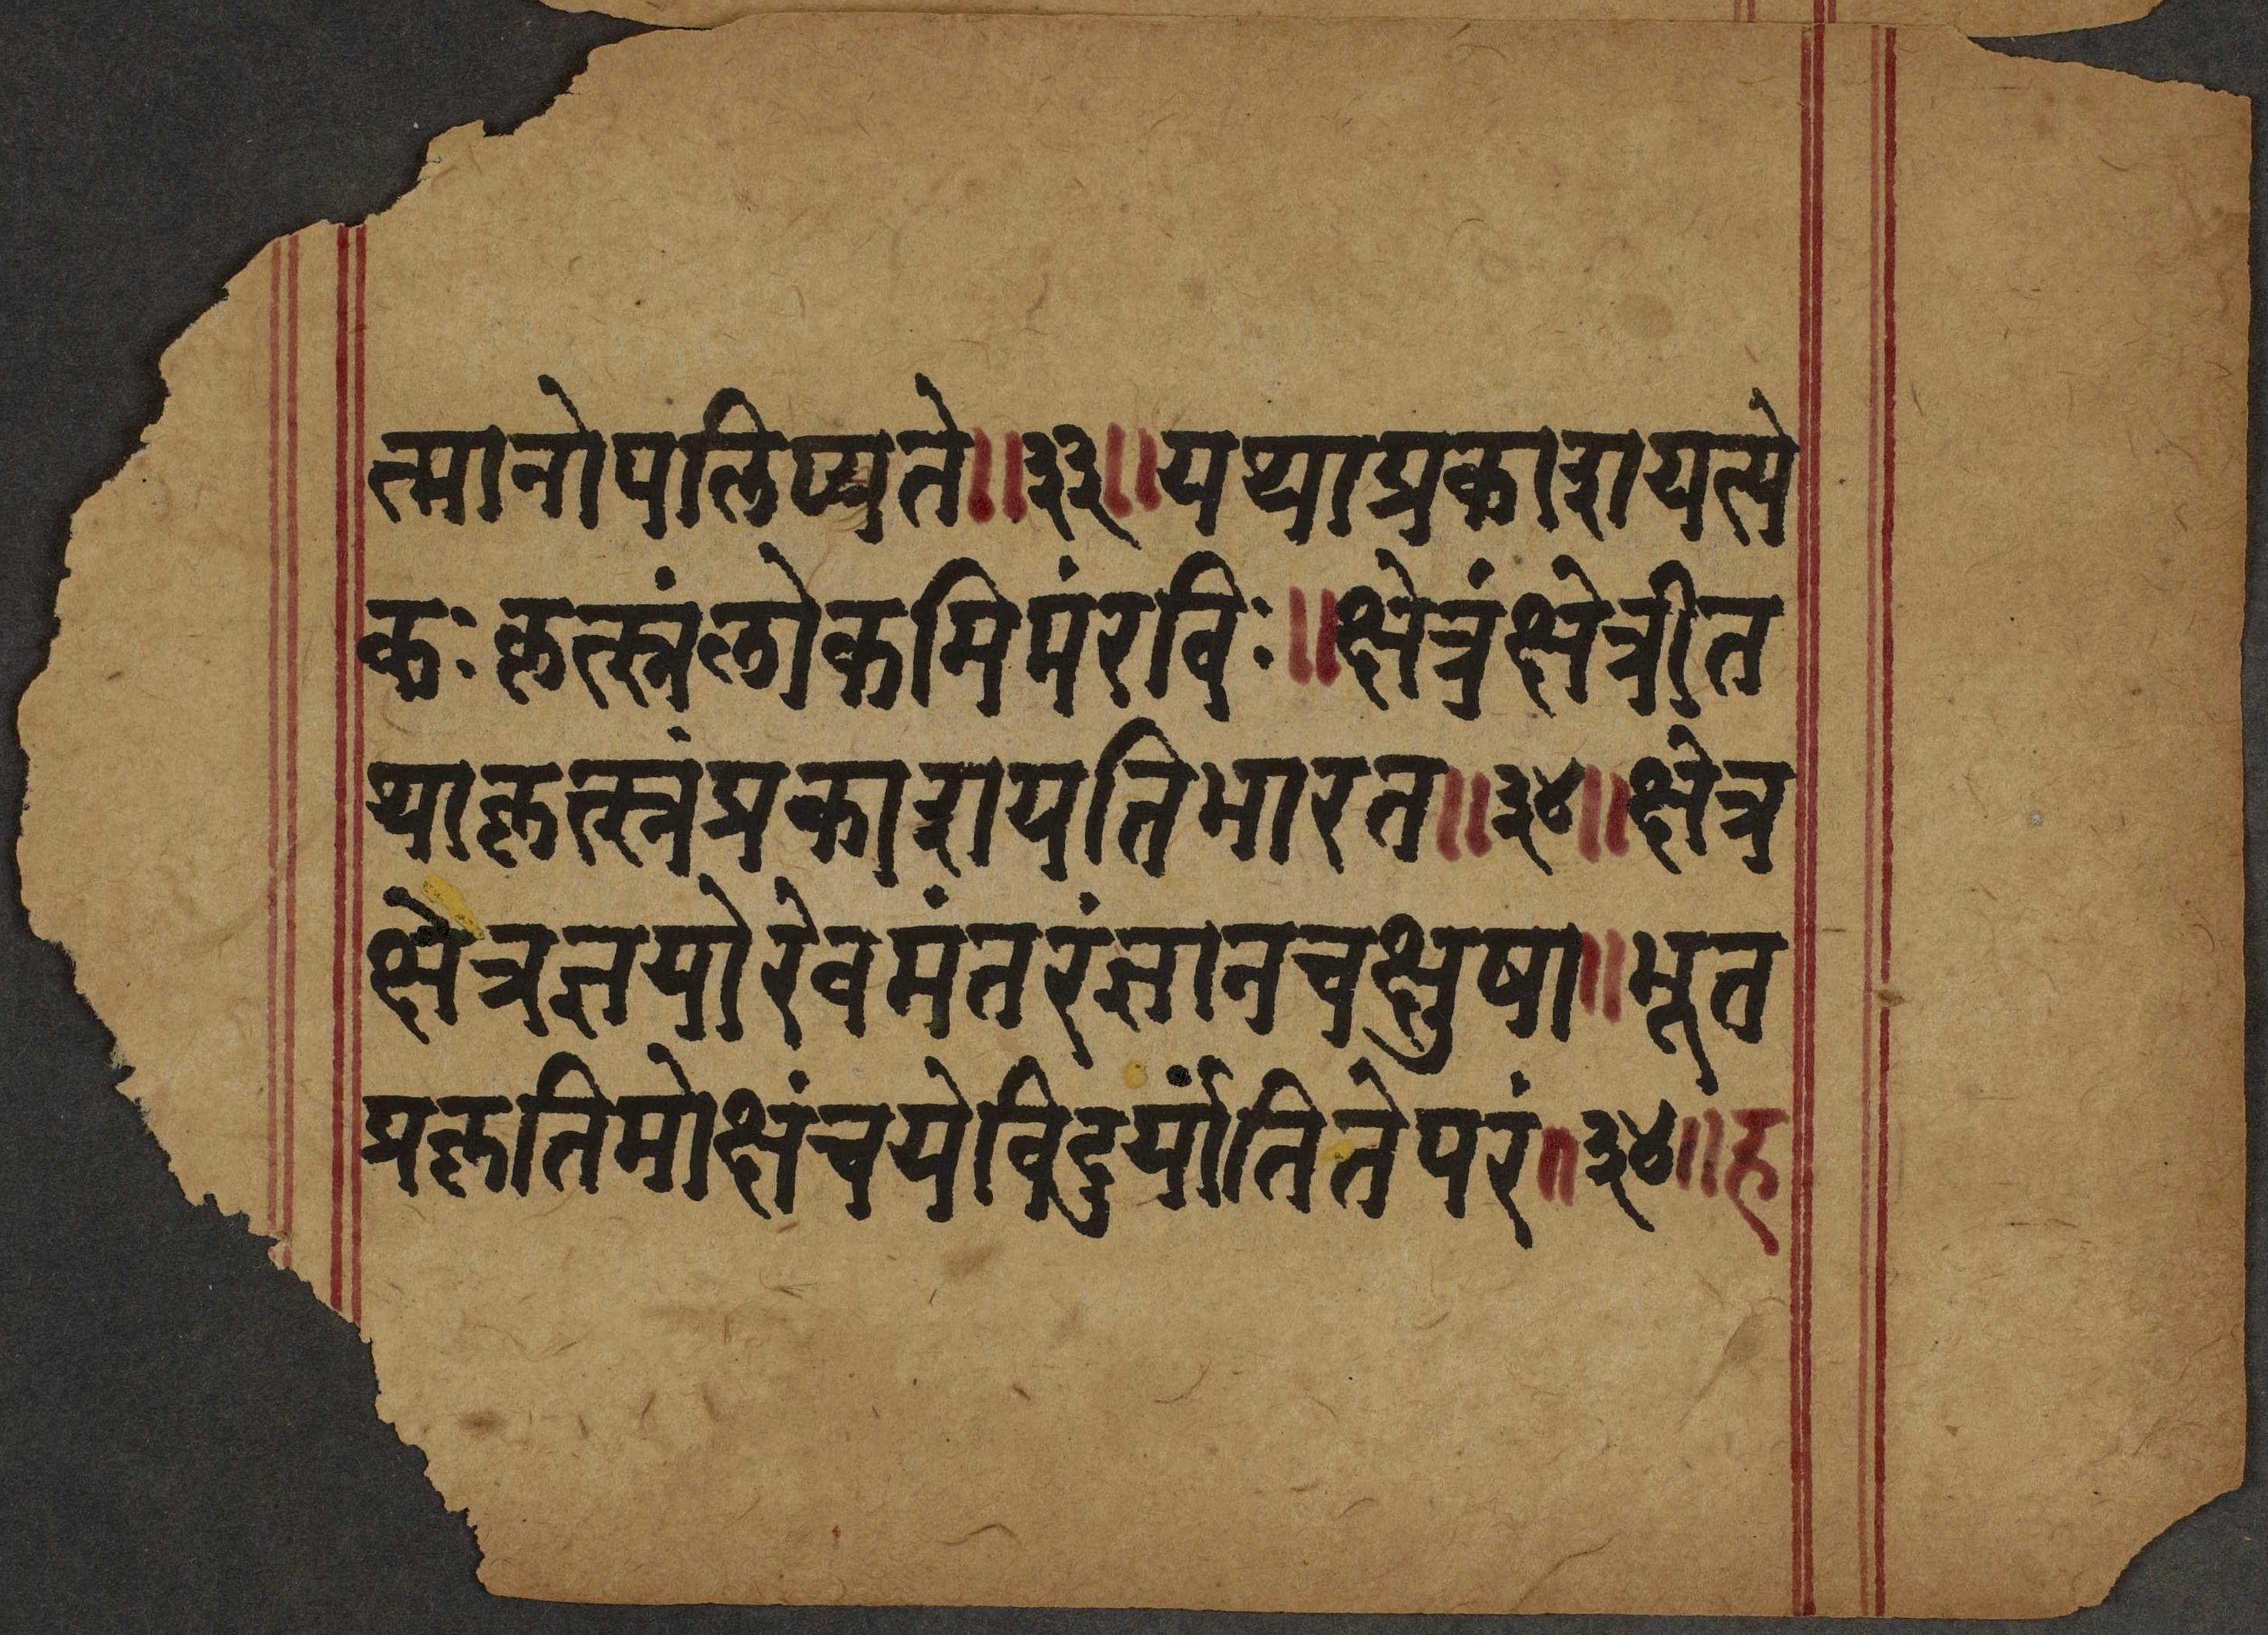 त्मानोपलिप्यते॥३३॥यथाप्रकाशयत्ये
कः कृत्स्नंलोकमिमंरविः॥क्षेत्रंक्षेत्रीत
थाकृत्स्नंप्रकाशयतिभारत॥३४॥क्षेत्र
क्षेत्रज्ञयोरेवमंतरंज्ञानचक्षुषा॥भूत
प्रकृतिमोक्षंचयेविदुर्यांतितेपरं॥३४॥ह